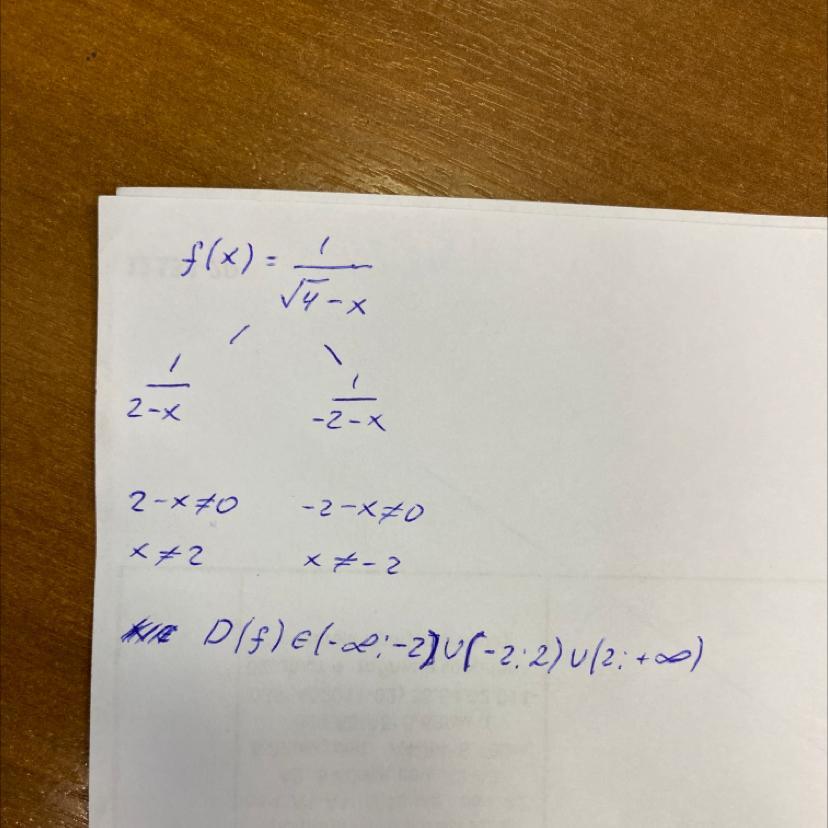 f(x) = 1/(√4 - x)
1/(2-x) 1/(-2-x)
2-x≠0 -2-x≠0
x≠2 x≠-2
D(f)∈(-∞;-2)∪(-2;2)∪(2;+∞)